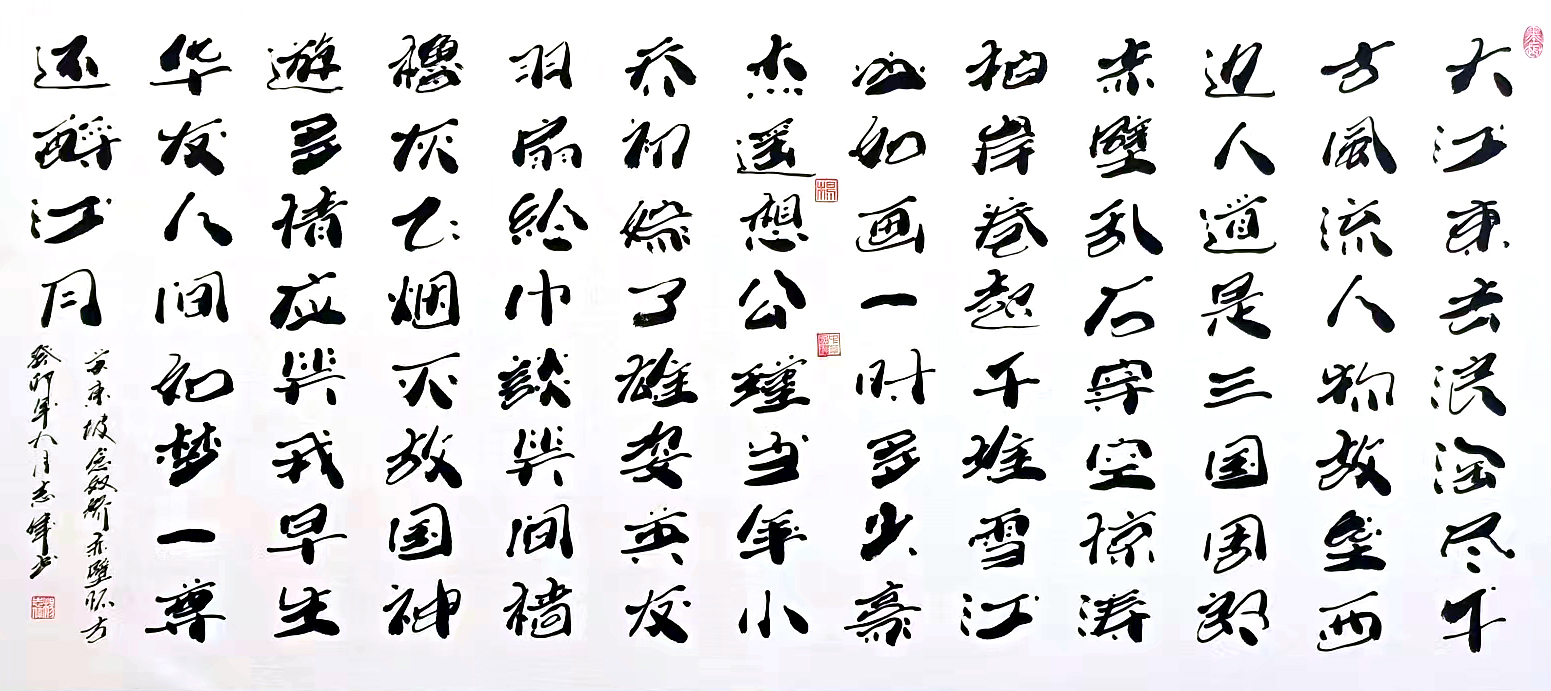 大江東去浪淘尽千
古風流人物故垒西
边人道是三国周郎
赤壁乱石穿空惊涛
拍岸卷起千堆雪江
山如画一时多少豪
杰遥想公瑾当年小
乔初嫁了雄姿英发
羽扇纶巾談笑间樯
橹灰飞烟灭故国神
遊多情应笑我早生
华发人间如梦一尊
还酹江月
苏東坡念奴娇赤壁怀古
癸卯年月志书